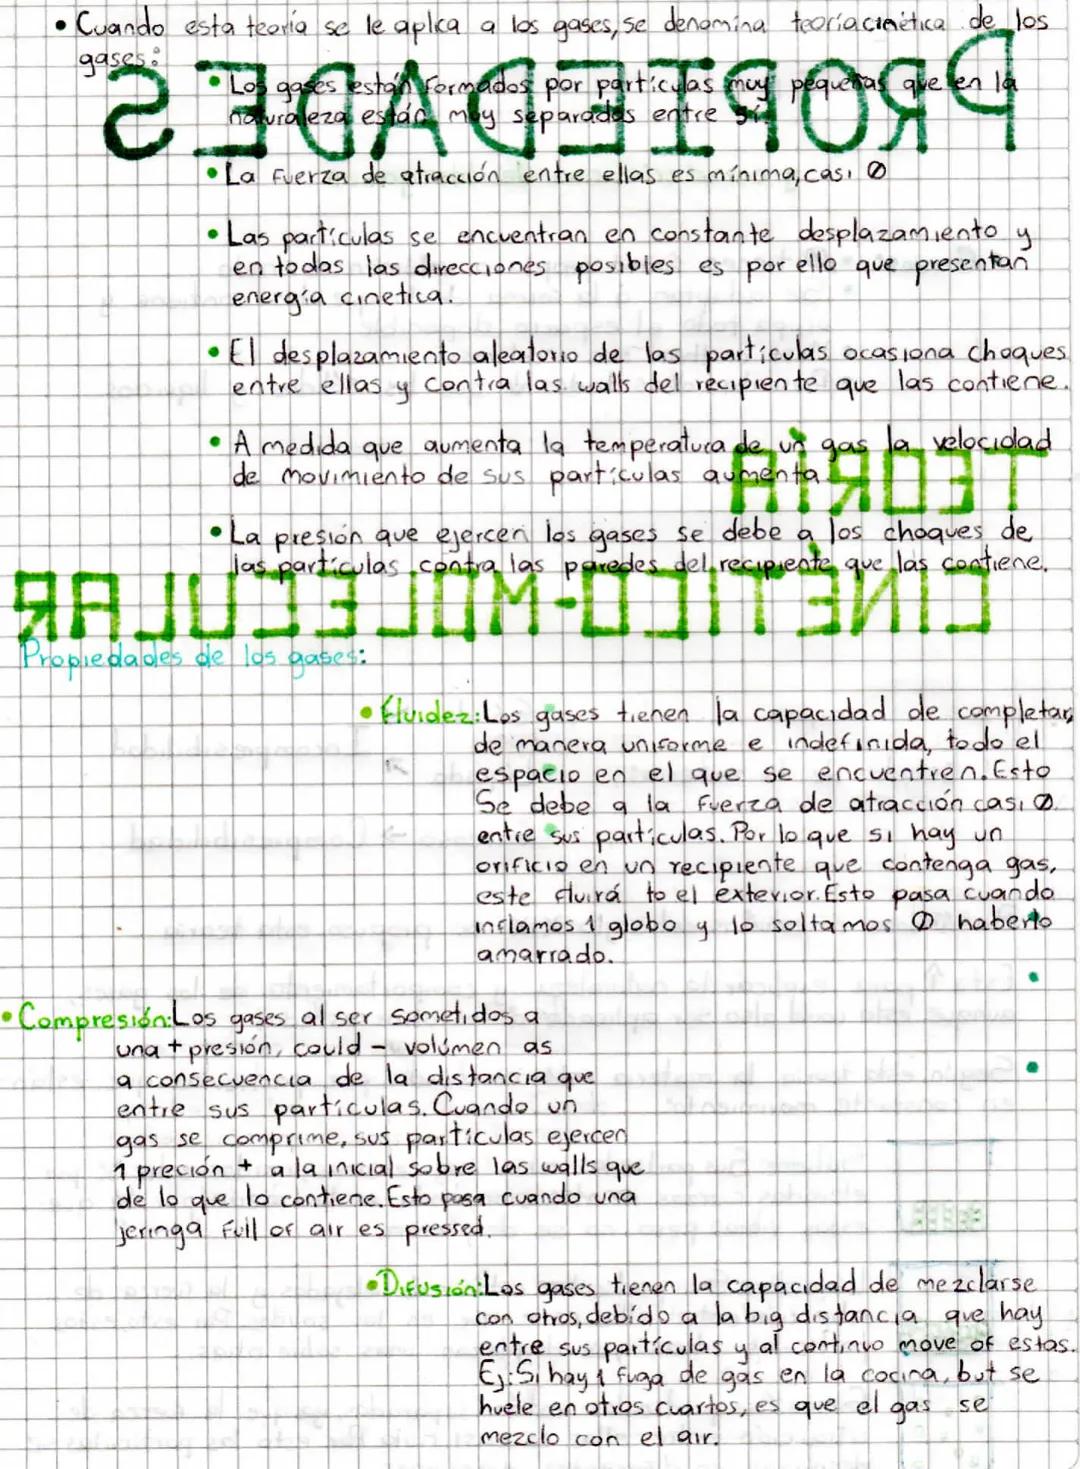 • Cuando esta teoría se le aplica a los gases, se denomina teoría cinética de los
gases:
PROPIEDADES
• Los gases están formados por partículas muy pequeñas que en la
naturaleza están muy separadas entre sí.
• La fuerza de atracción entre ellas es mínima, casi Ø
• Las partículas se encuentran en constante desplazamiento y
en todas las direcciones posibles es por ello que presentan
energía cinetica.
• El desplazamiento aleatorio de las partículas ocasiona choques
entre ellas y contra las walls del recipiente que las contiene.
• A medida que aumenta la temperatura de un gas la velocidad
de movimiento de sus partículas aumenta.
TEORÍA
• La presión que ejercen los gases se debe a los choques de
las partículas contra las paredes del recipiente que las contiene.
CINETICO-MOLECULAR
Propiedades de los gases:
• Fluidez: Los gases tienen la capacidad de completar,
de manera uniforme e indefinida, todo el
espacio en el que se encuentren. Esto
Se debe a la fuerza de atracción casi Ø
entre sus partículas. Por lo que si hay un
orificio en un recipiente que contenga gas,
este fluirá to el exterior. Esto pasa cuando
inflamos 1 globo y lo soltamos Ø haberlo
amarrado.
• Compresión: Los gases al ser sometidos a
una + presión, could - volúmen as
a consecuencia de la distancia que
entre sus partículas. Cuando un
gas se comprime, sus partículas ejercen
1 preción + a la inicial sobre las walls que
de lo que lo contiene. Esto pasa cuando una
jeringa full of air es pressed.
• Difusión: Los gases tienen la capacidad de mezclarse
con otros, debido a la big distancia que hay
entre sus partículas y al continuo move of estas.
Ej: Si hay 1 fuga de gas en la cocina, but se
huele en otros cuartos, es que el gas se
mezclo con el air.